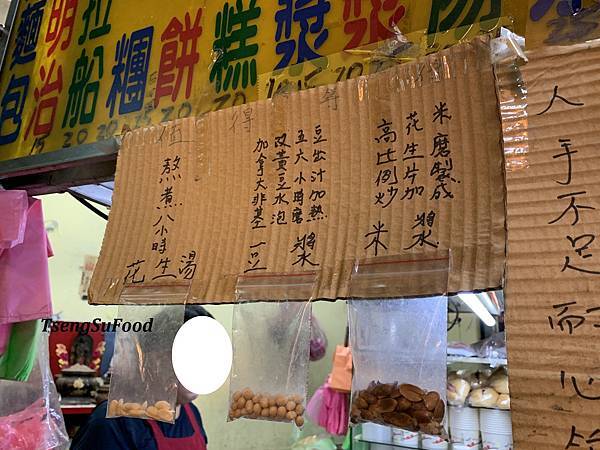 麵包
明治
拉船
團
餅
糕
漿
漿
值得等待
熬煮八小時
花生湯
加拿大非基
改黃豆水泡
五六小時磨
豆出汁加熱
豆漿
高比例炒
花生片加
米磨製成
米漿
人手不足而心
TsengSuFood